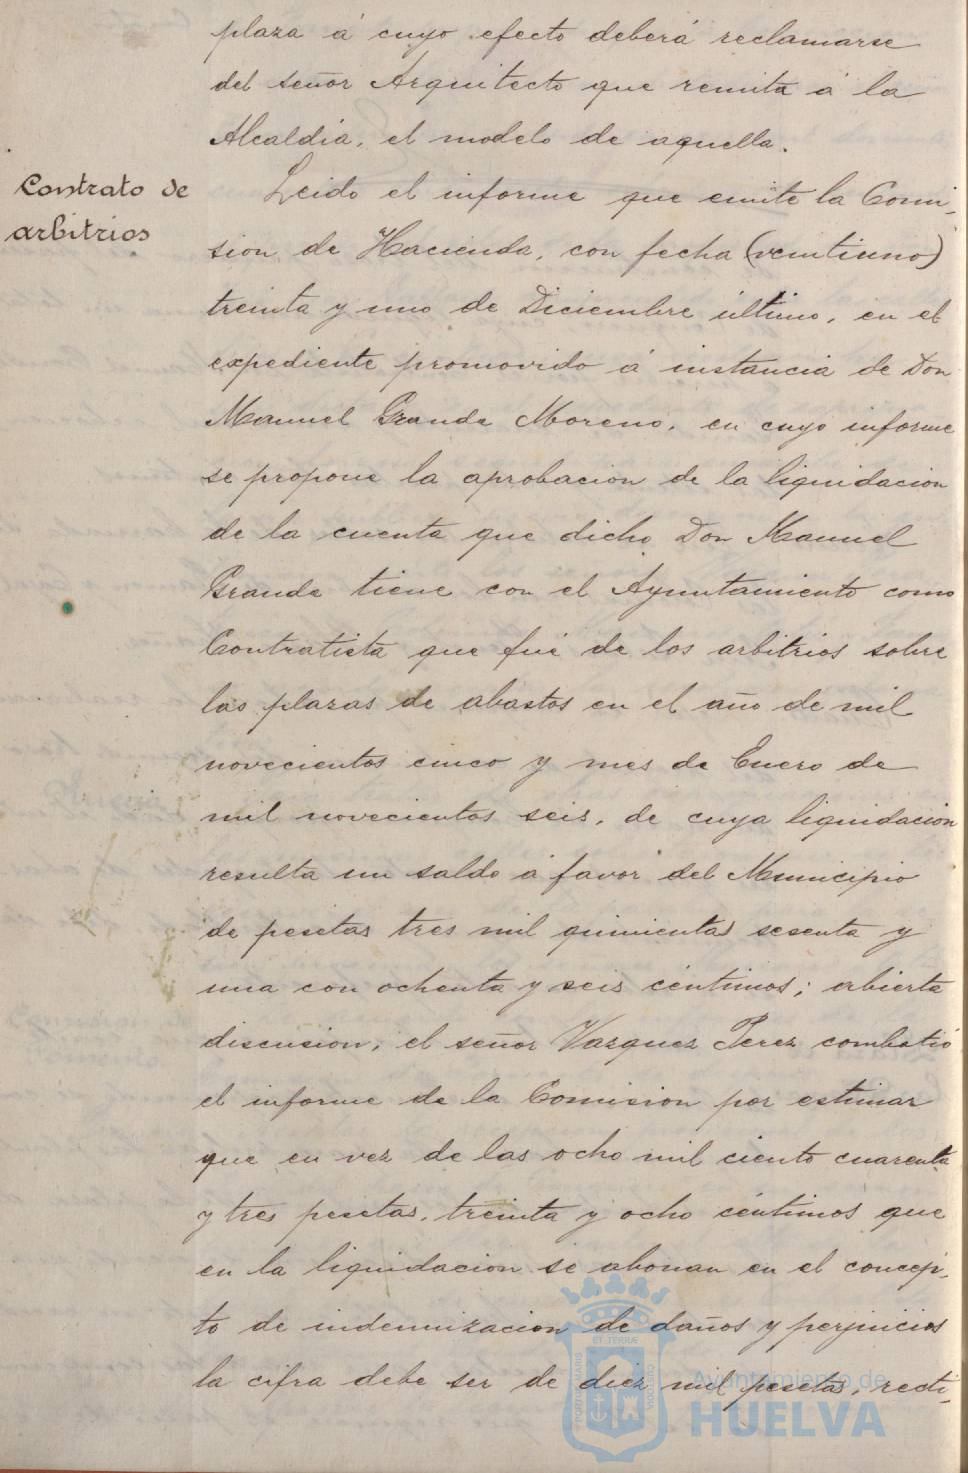 plaza á cuyo efecto deberá reclamarse
del señor Arquitecto que remita á la
Alcaldia, el modelo de aquella.
Contrato de
arbitrios
Leido el informe que emite la Comi-
sion de Hacienda, con fecha (veintiuno)
treinta y uno de Diciembre último, en el
expediente promovido á instancia de Don
Manuel Granda Moreno, en cuyo informe
se propone la aprobacion de la liquidacion
de la cuenta que dicho Don Manuel
Granda tiene con el Ayuntamiento como
Contratista que fué de los arbitrios sobre
las plazas de abastos en el año de mil
novecientos cinco y mes de Enero de
mil novecientos seis, de cuya liquidacion
resulta un saldo á favor del Municipio
de pesetas tres mil quinientas sesenta y
una con ochenta y seis céntimos; abierta
discusion, el señor Vazquez Perez combatió
el informe de la Comision por estimar
que en vez de las ocho mil ciento cuarenta
y tres pesetas, treinta y ocho céntimos que
en la liquidacion se abonan en el concep-
to de indemnizacion de daños y perjuicios
la cifra debe ser de diez mil pesetas, recti-
PORTUS MARIS
ET TERRÆ
CUSTODIA
Ayuntamiento de
HUELVA